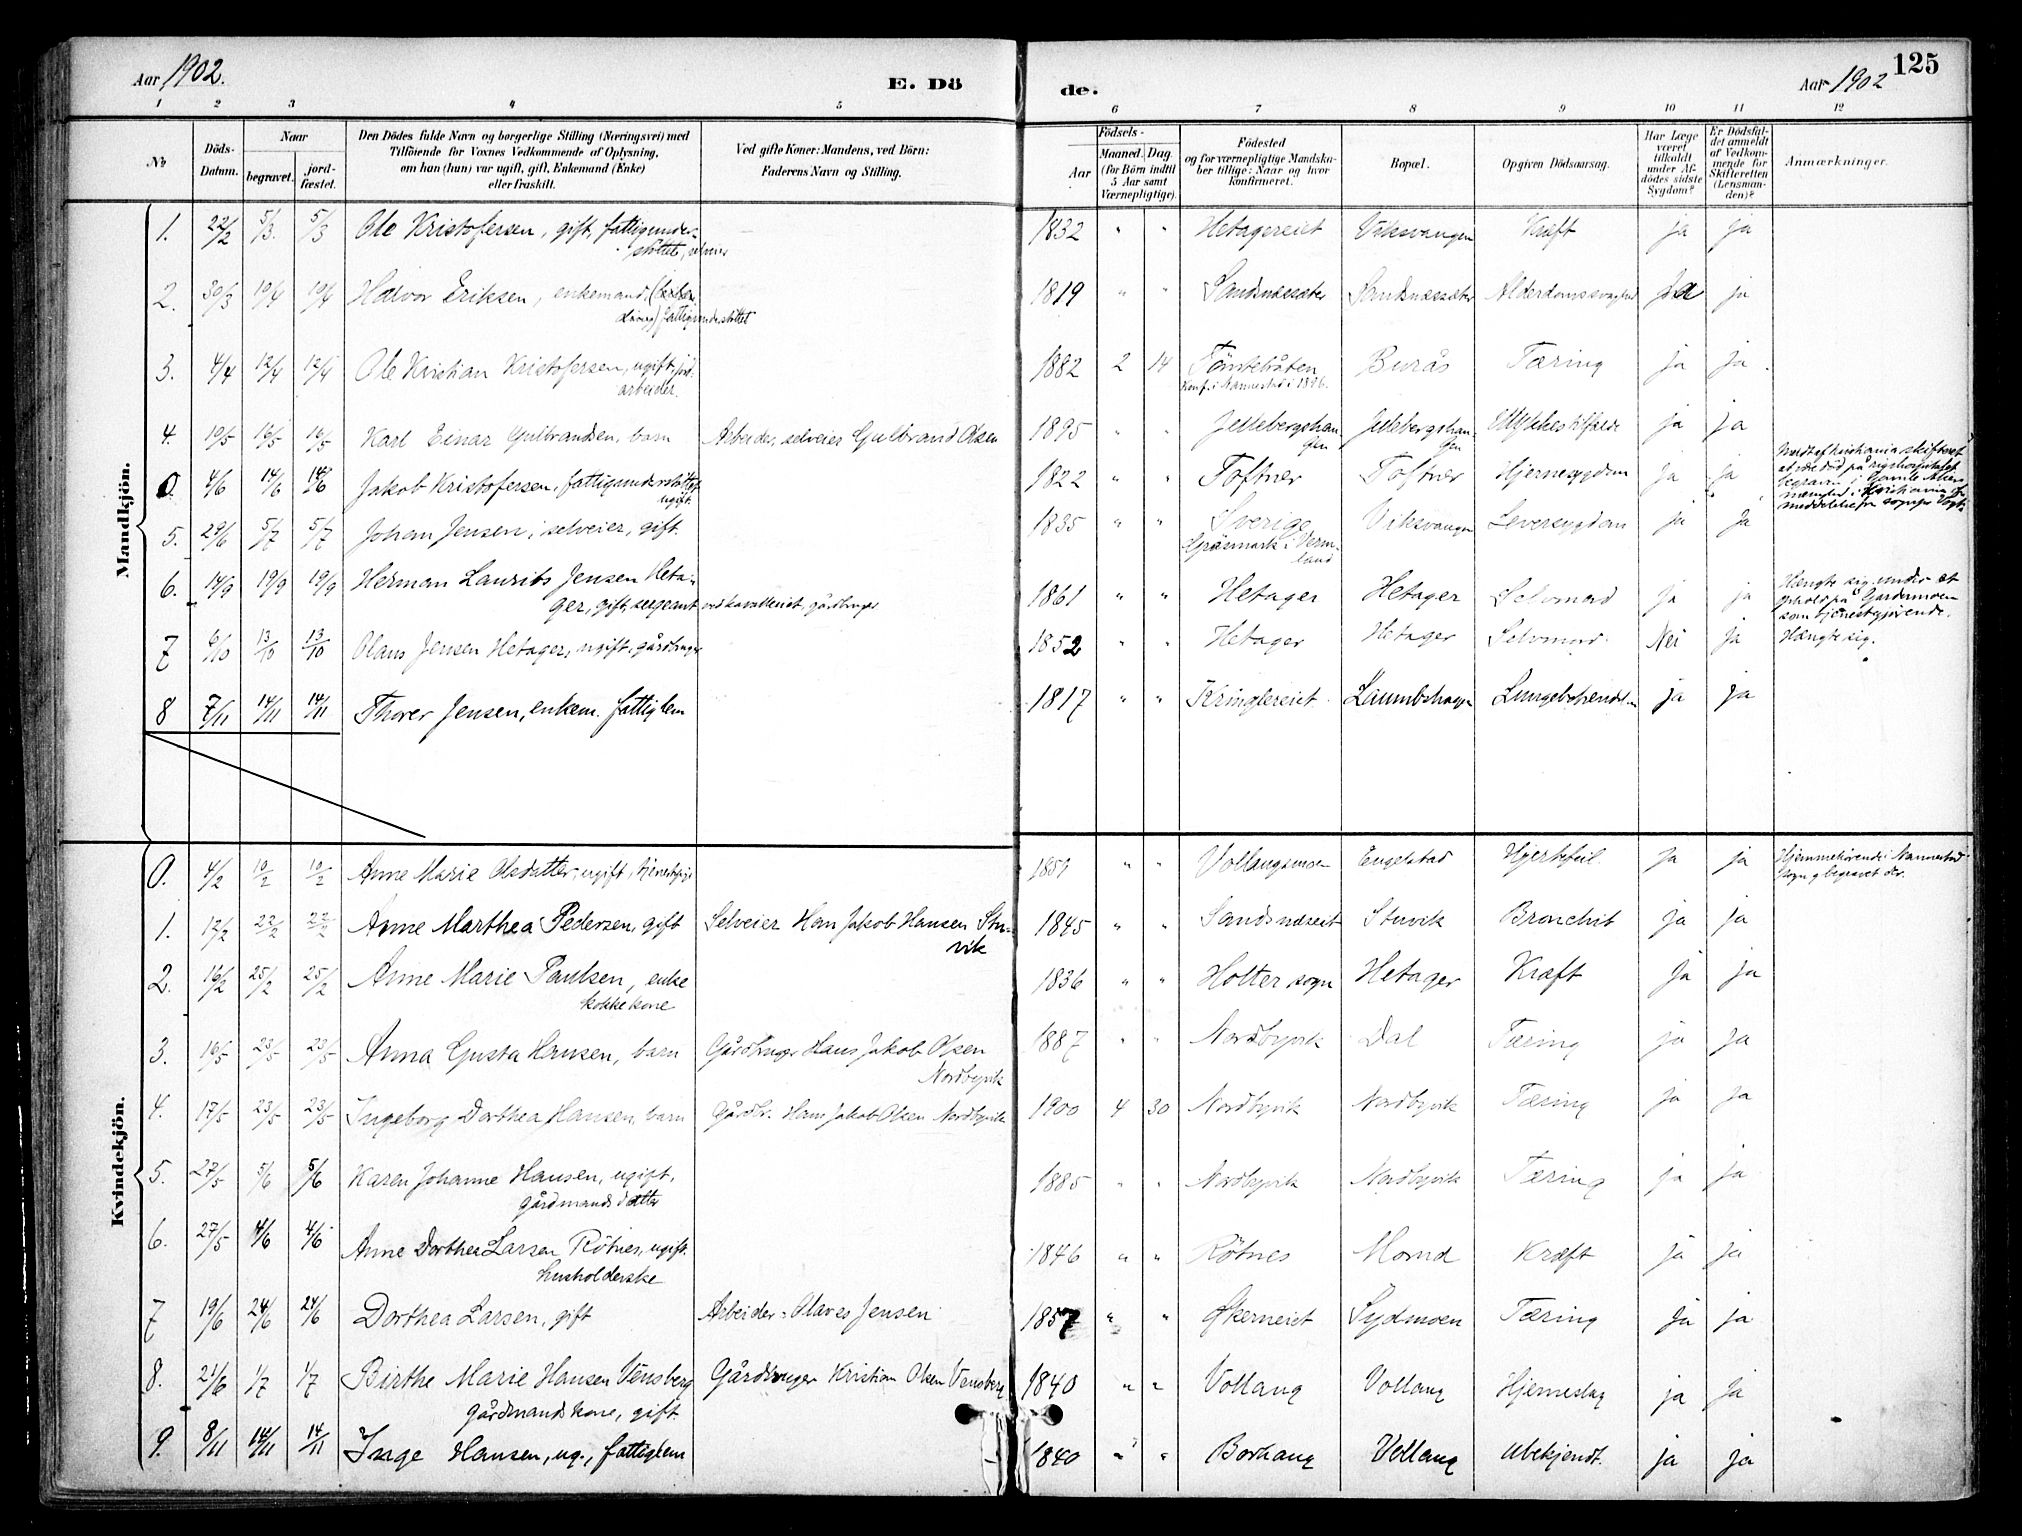 Aar 1902.
E. Dö
de.
Aar 1902
125
1 2 3 4 5 6 7 8 9 10 11 12
No
Döds-Datum.
Naar
begravet.
jord-fæstet.
Den Dödes fulde Navn og borgerlige Stilling (Næringsvei) med
Tilföiende för Voxnes Vedkommende af Oplysning,
om han (hun) var ugift, gift, Enkemand (Enke)
eller fraskilt.
Ved gifte Koner: Mandens, ved Börn:
Faderens Navn og Stilling.
Födsels-
Aar
Maaned. Dag.
(for Börn indtil
5 Aar samt
Værnepligtige).
Födested
og for værnepligtige Mandska-
ber tillige: Naar og hvor
konfirmeret.
Bopæl.
Opgiven Dödsaarsag.
Har Læge
været
tilkaldt
under Af-
dödes sidste
Sygdom?
Er Dödsfal-
det anmeldt
af Vedkom-
mende for
Skifteretten
(Lensman-
den)?
Anmærkninger.
Mandkjön.
1. 22/2 5/3. 5/3 Ole Kristofersen, gift, fattigunder- 1832 " " Hetagereiet Viksvangen Kræft ja ja
støttet, selveier
2. 30/3 10/4 10/4 Halvor Eriksen, enkemand, 1819 " " Sandsnessæter Sandsnessæter Alderdomssvaghed Ja ja
fattigunderstøttet
3. 4/4 12/4 12/4 Ole Kristian Kristofersen, ugift, jord- 1882 2 14 Tömtebråten Burås Tæring ja ja
arbeider. Konf. i Nannestad i 1896.
4. 10/5 16/5 16/5 Karl Einar Gulbrandsen, barn Arbeider, selveier Gulbrand Olsen 1895 " " Jellebergshau- Jellebergshau- Ulykkestilfælde ja ja
gen gen
0. 4/6 14/6 14/6 Jakob Kristofersen, fattigunderstøttet 1822 " " Toftner Toftner Hjernesygdom ja ja
ugift.
5. 29/6 5/7 5/7 Johan Jensen, selveier, gift. 1835 " " Sverige Viksvangen Leversygdom ja Ja
Gräsmark i Verm-
land
6. 14/9 19/9 19/9 Herman Laurits Jensen Heta- 1861 " " Hetager Hetager Selvmord ja ja Hængte sig under et
ger, gift, sergeant ved kavalleriet, gårdbruger ophold på Gardermoen
som tjenestgjörende.
7 6/10 13/10 13/10 Olaus Jensen Hetager, ugift, gårdbruger 1852 " " Hetager Hetager Selvmord. Nei ja Hængte sig.
8 7/11 14/11 14/11 Thorer Jensen, enkem. fattiglem 1817 " " Kringlereiet ja ja
Kvindekjön.
0. 4/2 10/2 10/2 Anne Marie Olsdatter, ugift, " " Vollaugsmoen Engelstad Hjertefeil. Ja ja Hjemmehörende i Nannestad
sogn og begravet der.
1. 12/2 22/2 22/2 Anne Marthea Pedersen, gift Selveier Hans Jakob Hansen Stu- 1845 " " Sandsnæseiet Stuvik Bronchit ja ja
vik
2. 16/2 25/2 25/2 Anne Marie Paulsen, enke 1836 " " Holter sogn Hetager Kræft ja ja
kokkekone
3. 16/5 23/5 23/5 Anna Gusta Hansen, barn Gårdbruger Hans Jakob Olsen 1887 " " Nordbyvik Dal Tæring ja Ja
Nordbyvik
4. 17/5 23/5 23/5 Ingeborg Dorthea Hansen, barn Gårdbr. Hans Jakob Olsen Nordbyvik 1900 4 30 Nordbyvik Nordbyvik Tæring ja ja
5. 27/5 5/6 5/6 Karen Johanne Hansen, ugift, 1885 " " Nordbyvik Nordbyvik Tæring ja ja
gårdmandsdatter
6. 27/5 4/6 4/6 Anne Dorthea Larsen Rötnes, ugift. 1846 " " Rötnes Mornd Kræft ja ja
husholderske
7 19/6 24/6 24/6 Dorthea Larsen, gift Arbeider Olaves Jensen 1857 " " Økerneiet Sydmoen Tæring Ja ja
8. 21/6 1/7 1/7 Birthe Marie Hansen Vensberg Gårdbruger Kristian Olsen Vensberg 1840 " " Vollaug Vollaug Hjerneslag ja Ja
gårdmandskone, gift.
9. 8/11 14/11 14/11 Inge Hansen, ug., fattiglem 1840 " " Borhaug Vollaug Ubekjendt. ja ja